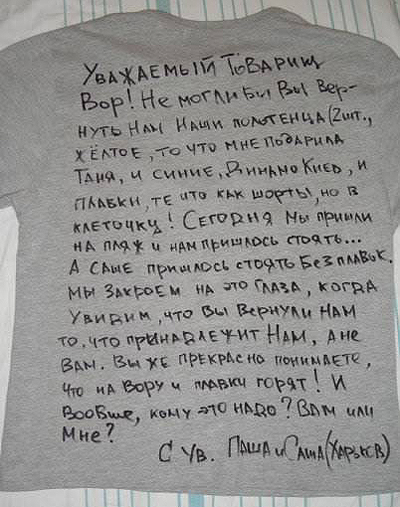 Уважаемый Товарищ
Вор! Не могли бы Вы вер-
нуть нам наши полотенца (2шт.,
жёлтое, то что мне подарила
Таня, и синие, Динамо Киев, и
плавки, те что как шорты, но в
клеточку! Сегодня мы пришли
на пляж и нам пришлось стоять...
А Саше пришлось стоять без плавок.
Мы закроем на это глаза, когда
увидим, что Вы вернули нам
то, что принадлежит нам, а не
Вам. Вы же прекрасно понимаете,
что на вору и плавки горят! И
вообще, кому это надо? Вам или
мне?
С ув. Паша и Саша (Харьков)